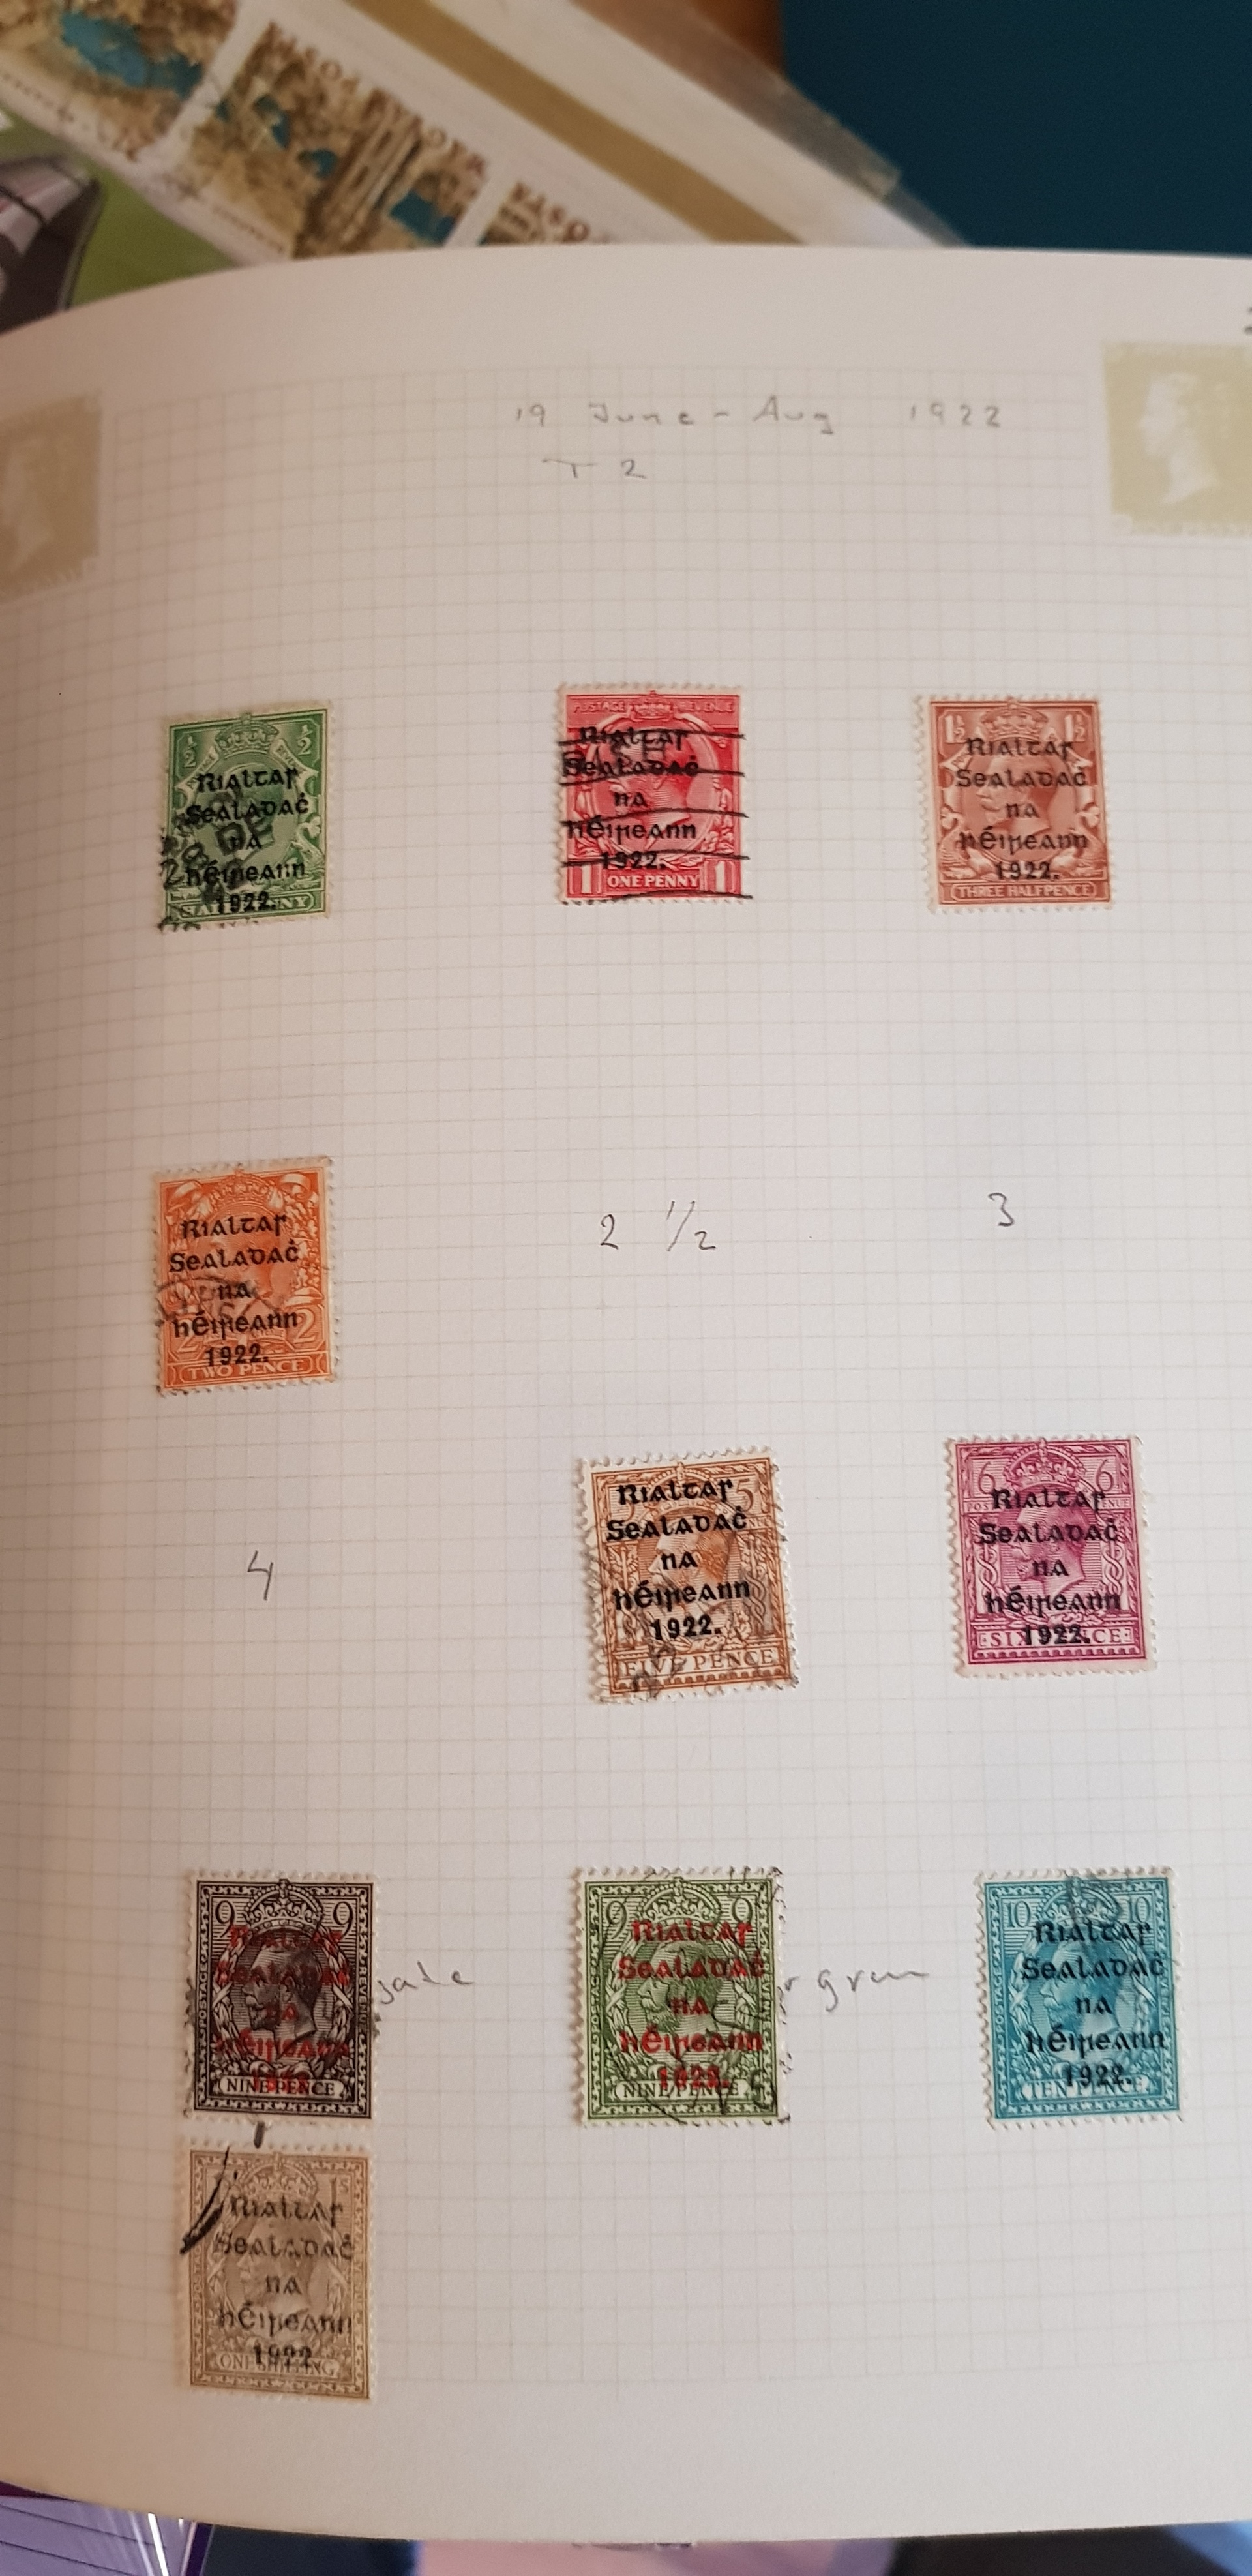 19 June - Aug 1922
T 2
½ ½
Rialtar
Sealadaċ
na
hÉireann
1922.
POSTAGE REVENUE
Rialtar
Sealadaċ
na
hÉireann
1922.
1 ONE PENNY 1
1½ 1½
Rialtar
Sealadaċ
na
hÉireann
1922.
THREE HALFPENCE
Rialtar
Sealadaċ
na
hÉireann
1922.
2 2
TWO PENCE
2 1/2
3
4
5
Rialtar
Sealadaċ
na
hÉireann
1922.
FIVE PENCE
6 6
Rialtar
Sealadaċ
na
hÉireann
1922.
SIX CE
9 9
Rialtar
Sealadaċ
na
hÉireann
1922.
POSTAGE REVENUE
NINE PENCE
9 9
Rialtar
Sealadaċ
na
hÉireann
1922.
NINE PENCE
green
10 10
Rialtar
Sealadaċ
na
hÉireann
1922.
TEN PENCE
Rialtar
Sealadaċ
na
hÉireann
1922
ONE SHILLING